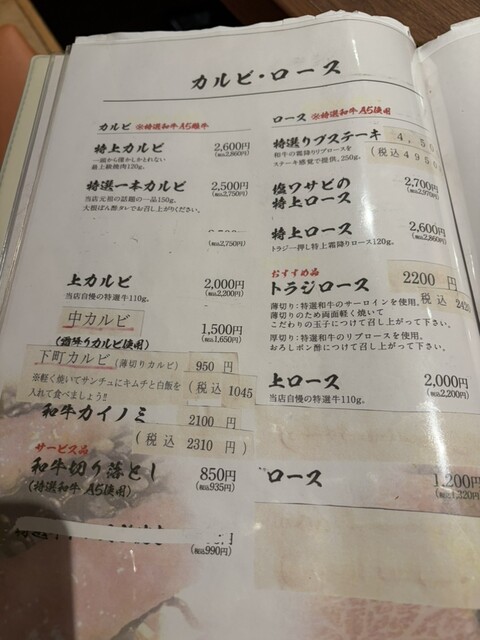 カルビ・ロース
カルビ ※特選和牛A5雌牛
特上カルビ 2,600円
一頭から僅かしかとれない (税込2,860円)
最上級焼肉120g。
特選一本カルビ 2,500円
当店元祖の話題の一品150g。 (税込2,750円)
大根ぽん酢タレでお召し上がりください。
(税込2,750円)
上カルビ 2,000円
当店自慢の特選牛110g。 (税込2,200円)
中カルビ 1,500円
(霜降りカルビ使用) (税込1,650円)
下町カルビ (薄切りカルビ) 950 円
※軽く焼いてサンチュにキムチと白飯を (税込 1045
入れて食べましょう!!
和牛カイノミ 2100 円
(税込 2310 円)
サービス品
和牛切り落とし 850円
(特選和牛A5使用) (税込935円)
(税込990円)
ロース ※特選和牛A5使用
特選リブステーキ 4,50
和牛の霜降りリブロースを (税込 4950
ステーキ感覚で提供。250g。
塩ワサビの 2,700円
特上ロース (税込2,970円)
特上ロース 2,600円
トラジ一押し特上霜降りロース120g。 (税込2,860円)
おすすめ品
トラジロース 2200 円
薄切り:特選和牛のサーロインを使用。 税込 242
薄切りのため両面軽く焼いて
こだわりの玉子につけて召し上がって下さい。
厚切り:特選和牛のリブロースを使用。
おろしポン酢につけて召し上がって下さい。
上ロース 2,000円
当店自慢の特選牛110g。 (税込2,200円)
ロース 1,200円
(税込1,320円)